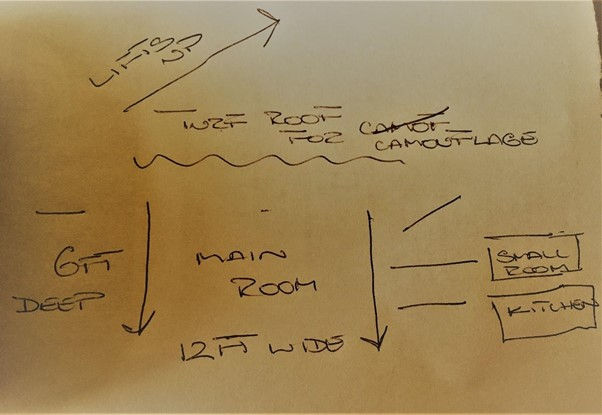 LIFTS UP
TURF ROOF
FOR CAMOF
CAMOUFLAGE
6FT
DEEP
MAIN
ROOM
12FT WIDE
SMALL
ROOM
KITCHEN